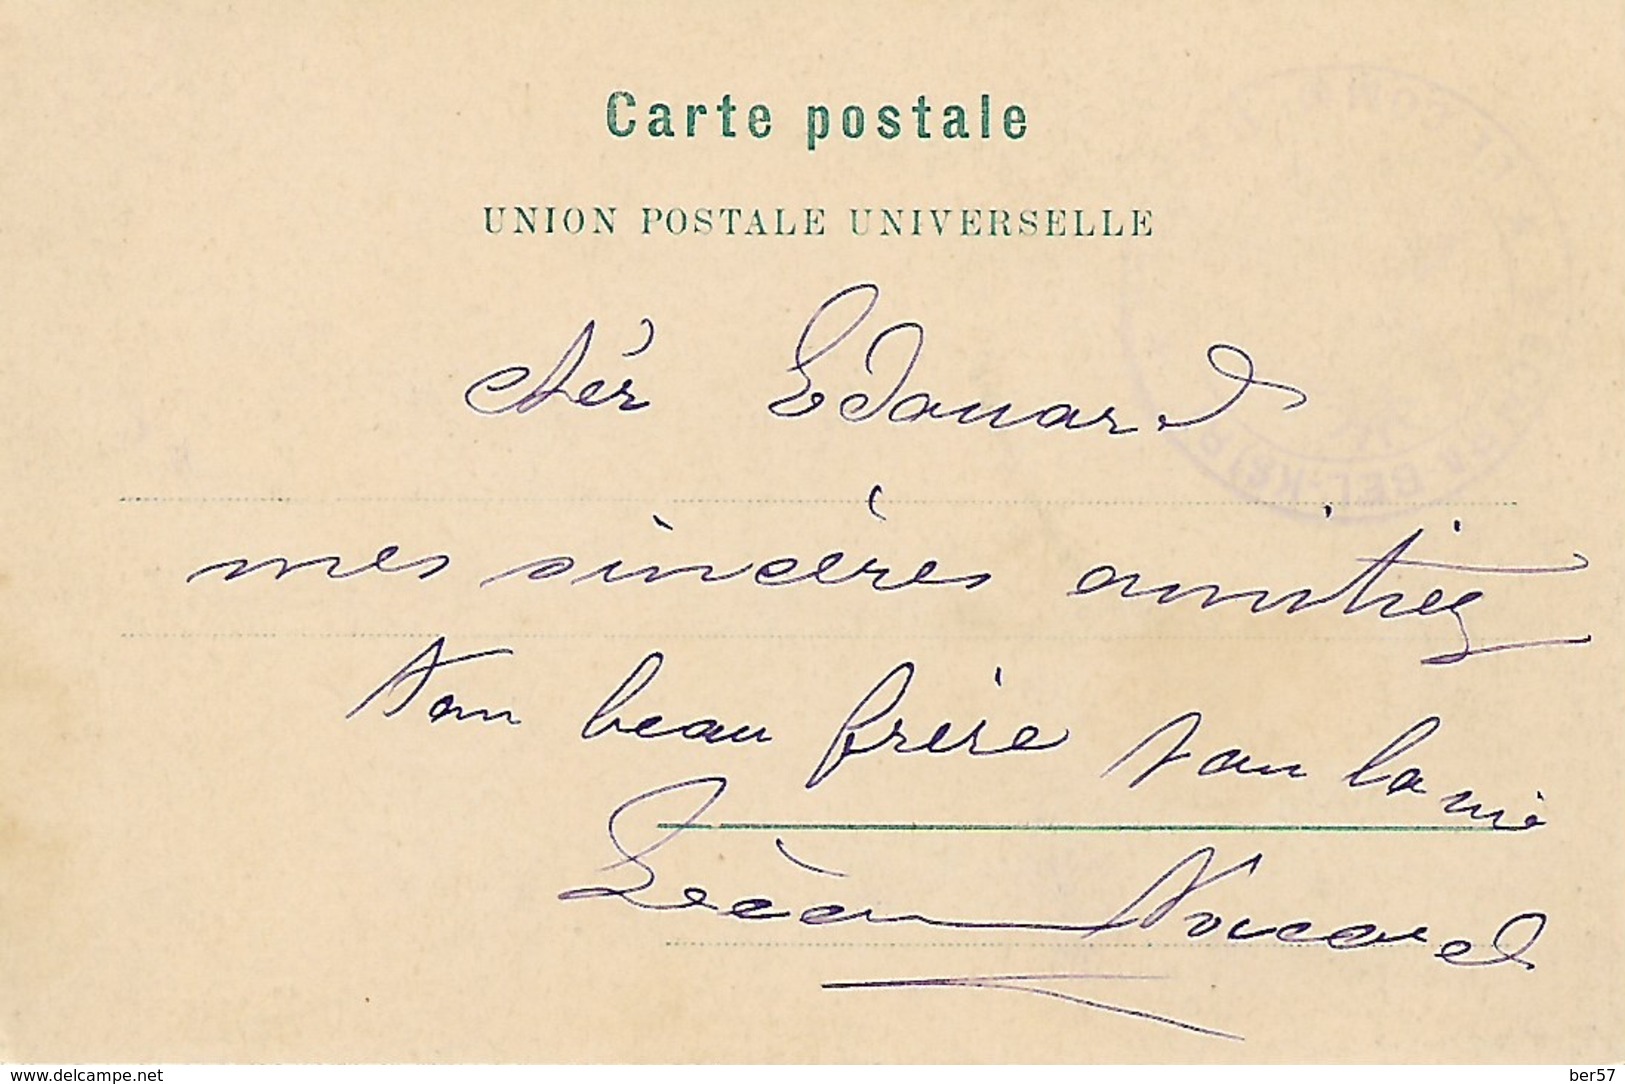 Carte postale
UNION POSTALE UNIVERSELLE
chér Edouard
mes sincéres amitiés
ton beau frère ton
Léon
www.delcampe.net
ber57